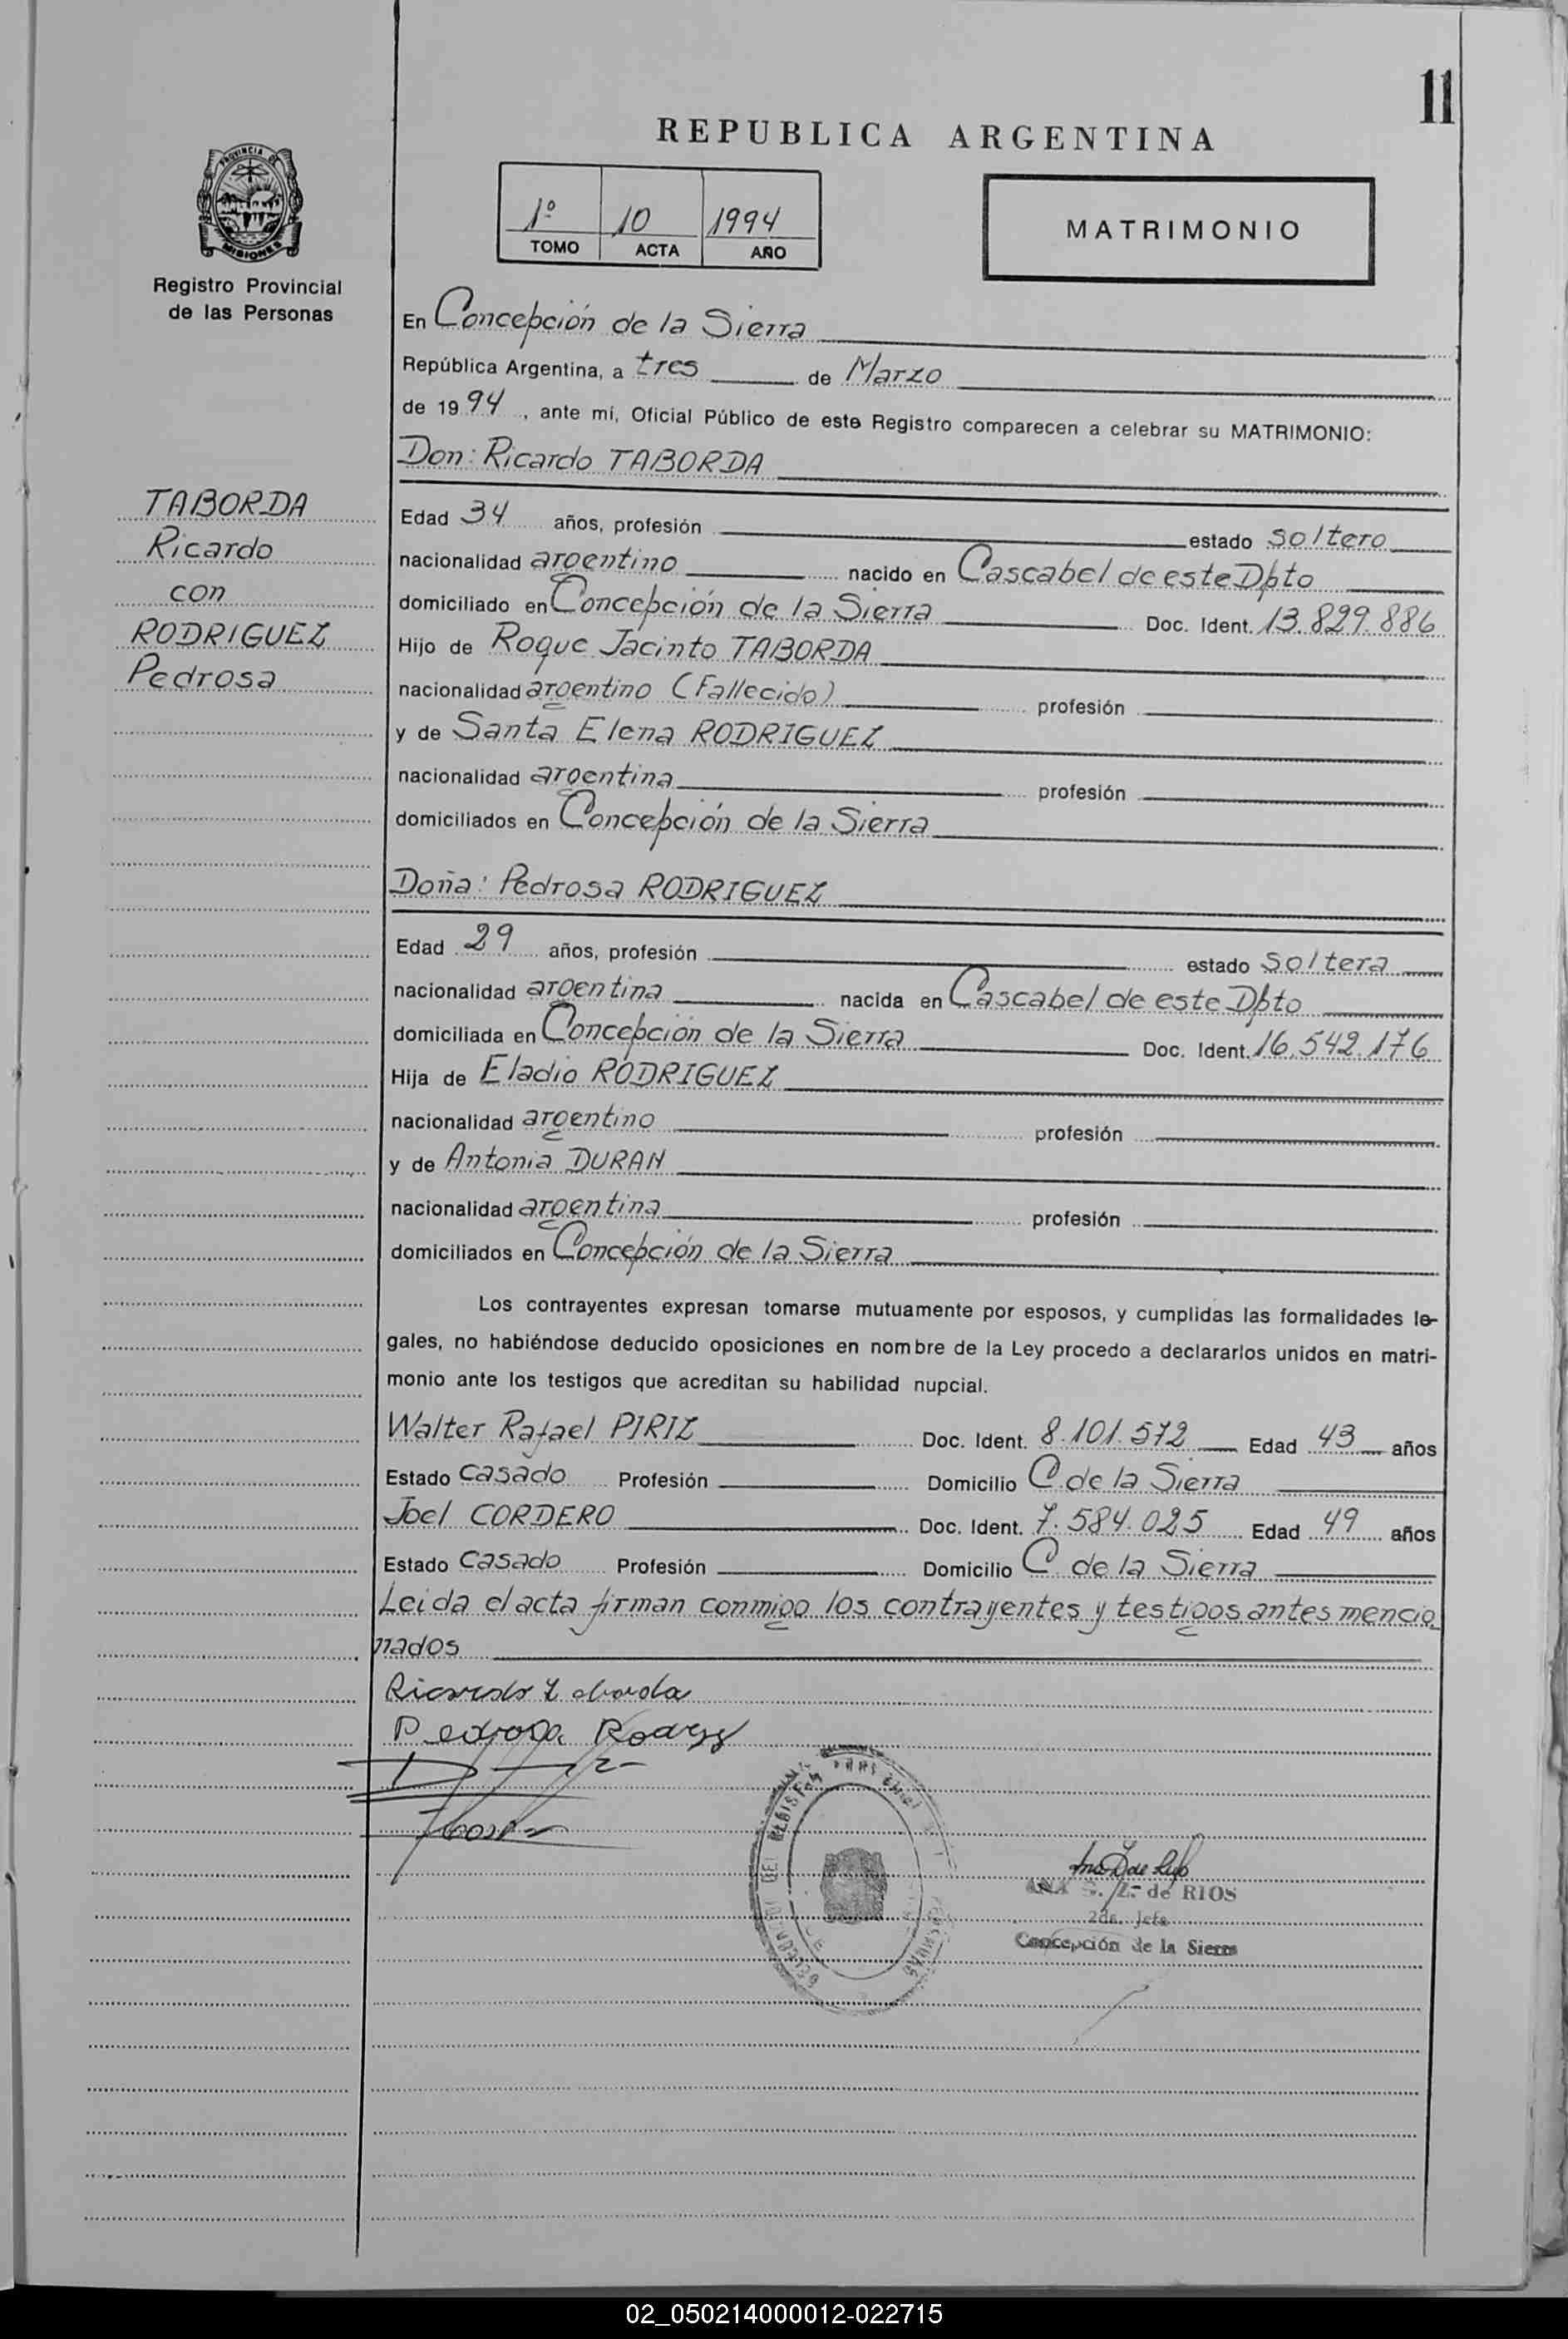 11
REPUBLICA ARGENTINA
PROVINCIA DE
MISIONES
Registro Provincial
de las Personas
1º 10 1994
TOMO ACTA AÑO
MATRIMONIO
En Concepción de la Sierra
República Argentina, a tres de Marzo
de 1994, ante mí, Oficial Público de este Registro comparecen a celebrar su MATRIMONIO:
Don: Ricardo TABORDA
TABORDA
Ricardo
con
RODRIGUEZ
Pedrosa
Edad 34 años, profesión estado soltero
nacionalidad argentino nacido en Cascabel de este Dpto
domiciliado en Concepción de la Sierra Doc. Ident. 13.829.886
Hijo de Roque Jacinto TABORDA
nacionalidad argentino (Fallecido) profesión
y de Santa Elena RODRIGUEZ
nacionalidad argentina profesión
domiciliados en Concepción de la Sierra
Doña: Pedrosa RODRIGUEZ
Edad 29 años, profesión estado soltera
nacionalidad argentina nacida en Cascabel de este Dpto
domiciliada en Concepción de la Sierra Doc. Ident. 16.542.176
Hija de Eladio RODRIGUEZ
nacionalidad argentino profesión
y de Antonia DURAN
nacionalidad argentina profesión
domiciliados en Concepción de la Sierra
Los contrayentes expresan tomarse mutuamente por esposos, y cumplidas las formalidades le-
gales, no habiéndose deducido oposiciones en nombre de la Ley procedo a declararlos unidos en matri-
monio ante los testigos que acreditan su habilidad nupcial.
Walter Rafael PIRIZ Doc. Ident. 8.101.572 Edad 43 años
Estado casado Profesión Domicilio C. de la Sierra
Joel CORDERO Doc. Ident. 7.584.025 Edad 49 años
Estado casado Profesión Domicilio C. de la Sierra
Leida el acta firman conmigo los contrayentes y testigos antes mencio
nados
Ricardo Taborda
Pedrosa
ANA S. Z. de RIOS
2da. Jefa
Concepción de la Sierra
02_050214000012-022715